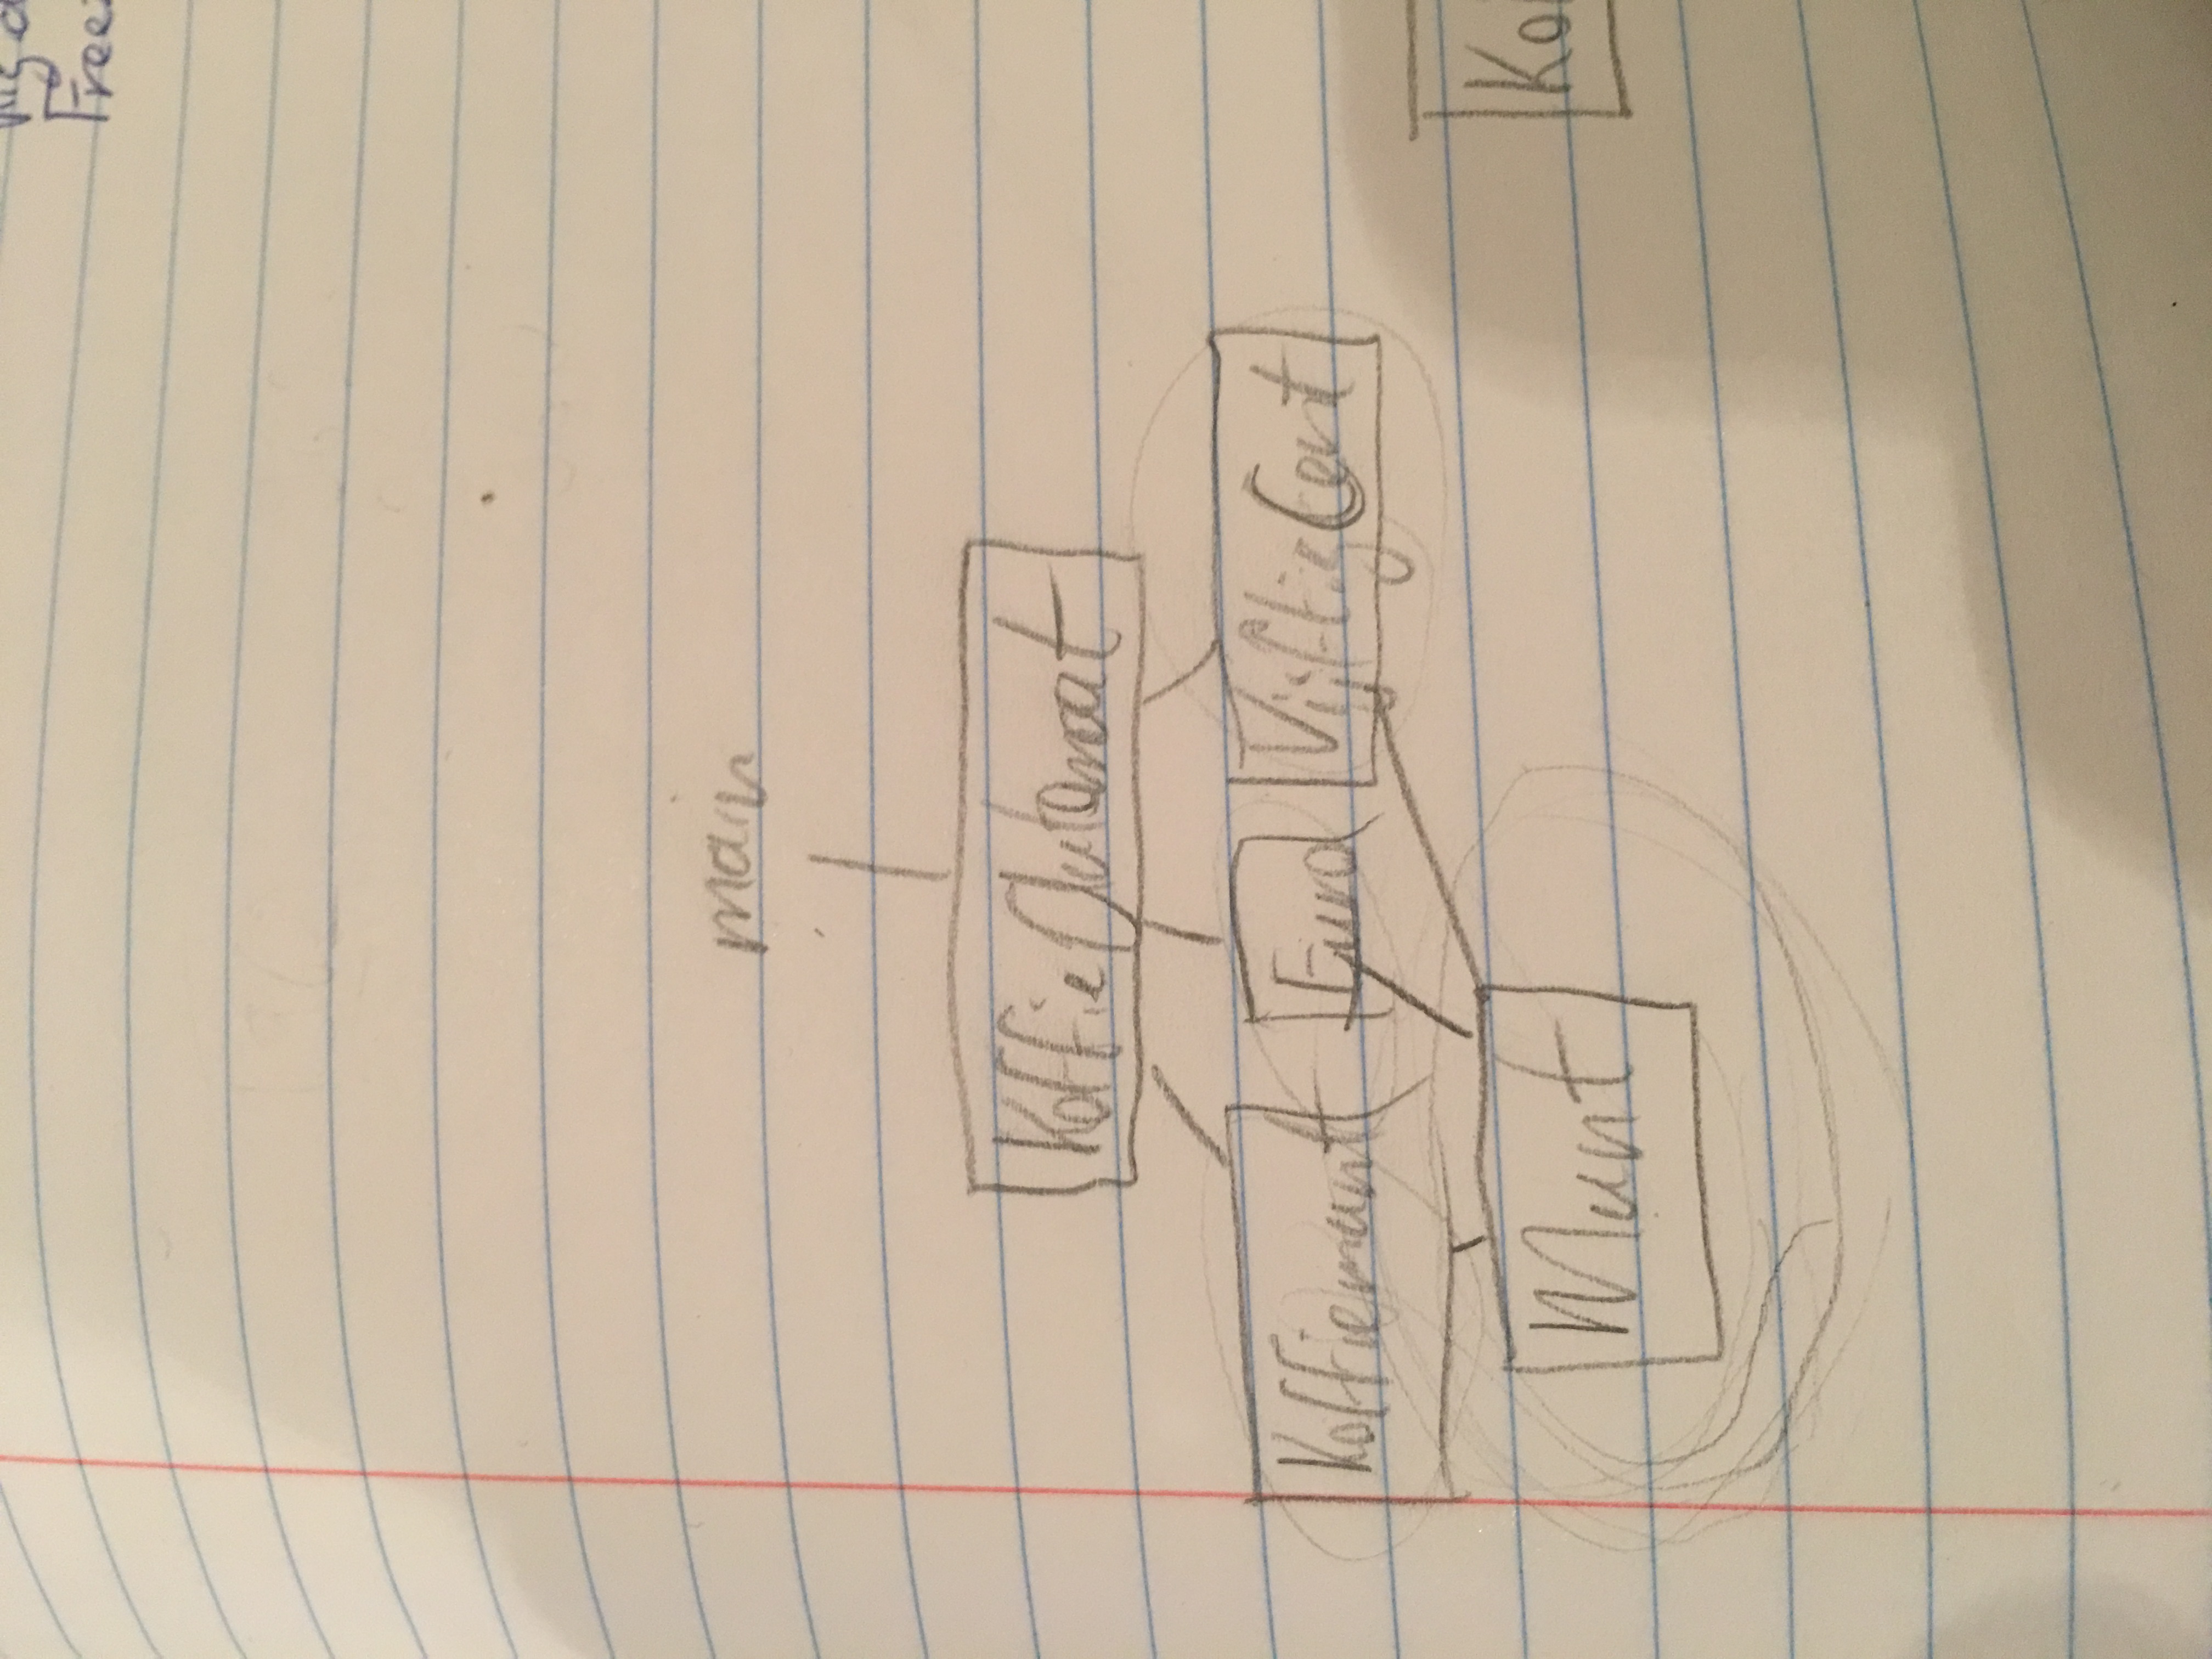 Freez
main
KoffieAutomaat
Koffiemunt Euro VijftigCent
Ko
Munt